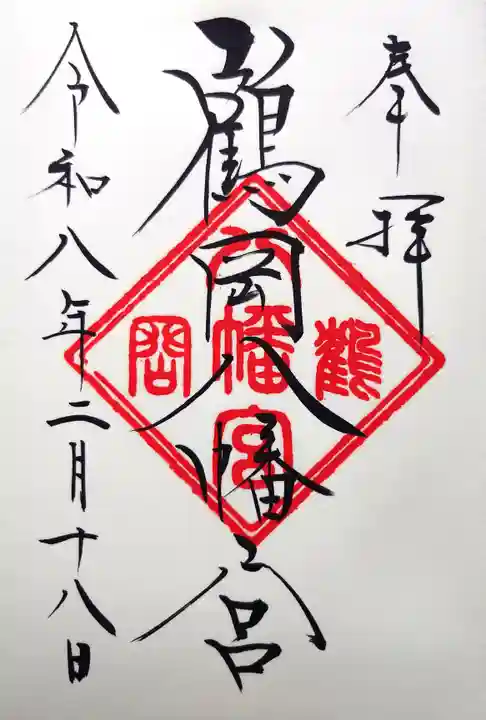 奉拝
鶴岡八幡宮
鶴岡八幡宮
令和八年二月十八日